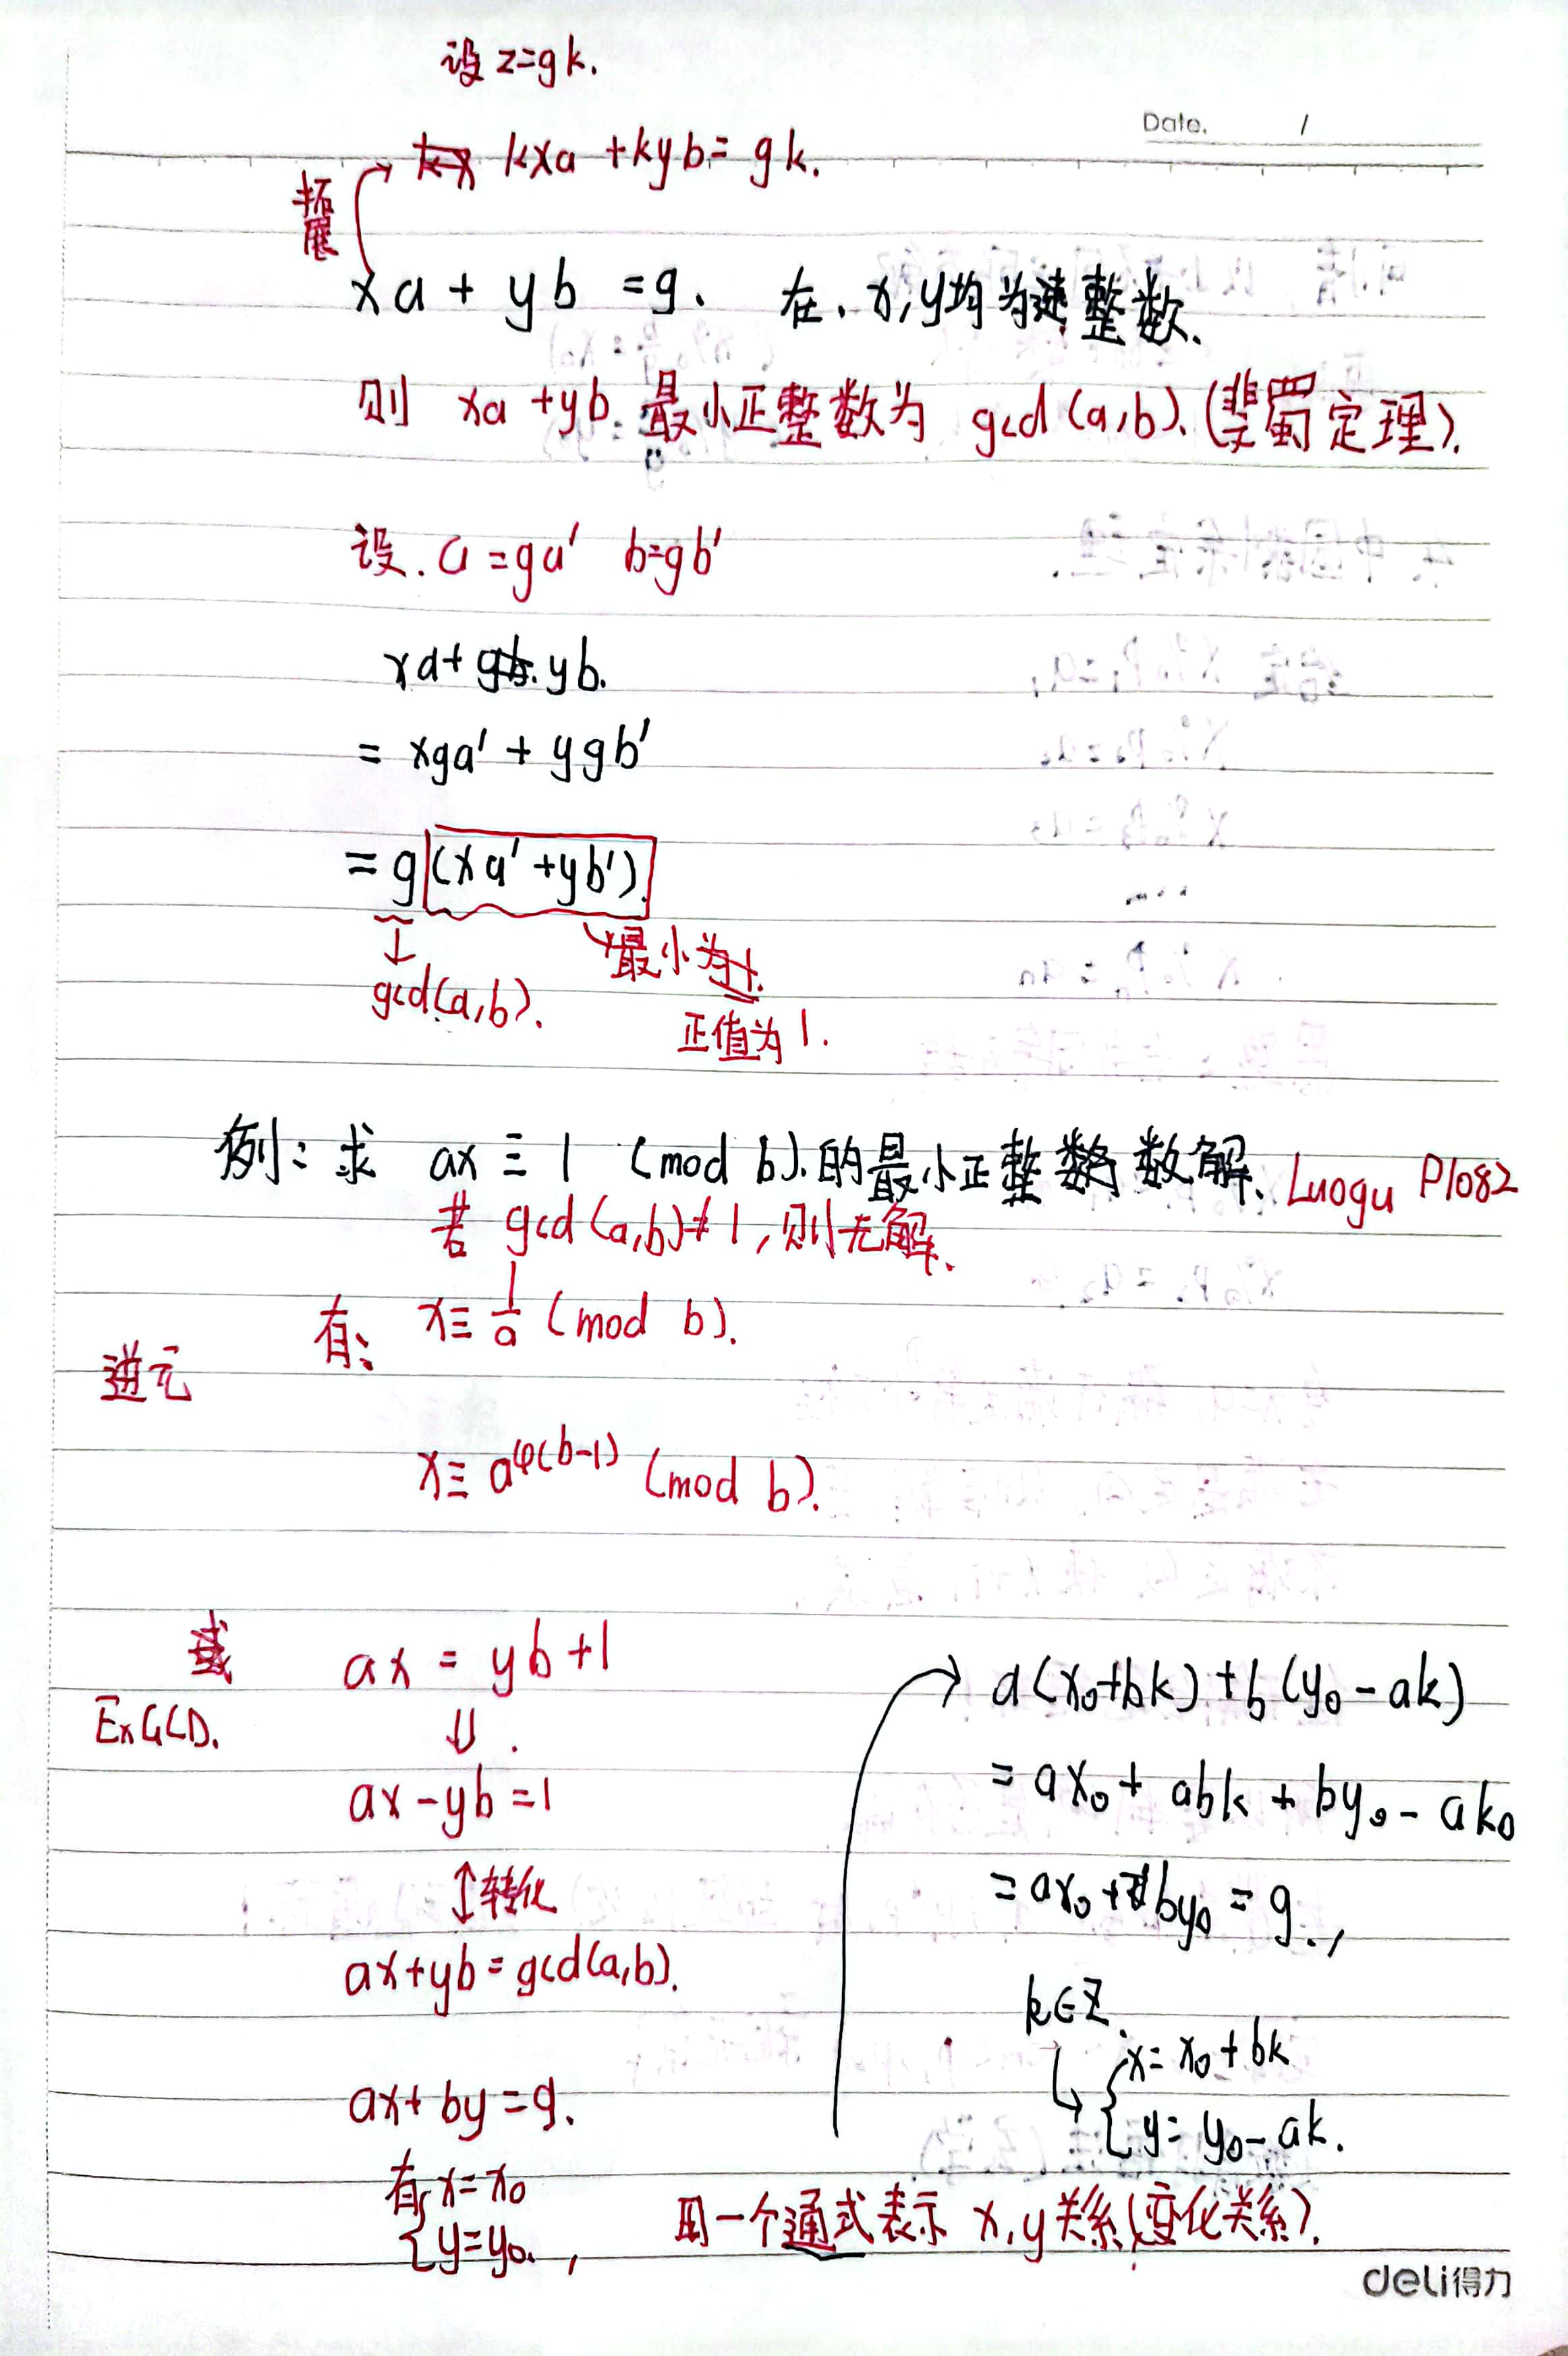 设 z=gk.
Date. /
kxa +kyb= gk.
拓展
xa + yb =g. 在. x,y均为整数.
则 xa +yb 最小正整数为 gcd(a,b).(裴蜀定理).
设. a=ga' b=gb'
xa+ yb.
= xga' + ygb'
= g(xa'+yb').
最小为
gcd(a,b).
正值为1.
例: 求 ax ≡ 1 (mod b).的最小正整数解. Luogu P1082
若 gcd(a,b)≠1,则无解.
有: x≡ 1/a (mod b).
逆元
x≡ a^φ(b-1) (mod b).
ax = yb+1
ExGCD.
⇓.
ax-yb=1
↕转化
ax+yb=gcd(a,b).
ax+by=g.
有{x=x₀
y=y₀.,
a(x₀+bk)+b(y₀-ak)
=ax₀+abk+by₀-ak₀
=ax₀+by₀=g.,
k∈Z
{x=x₀+bk
y=y₀-ak.
用一个通式表示 x,y关系(变化关系).
deli得力